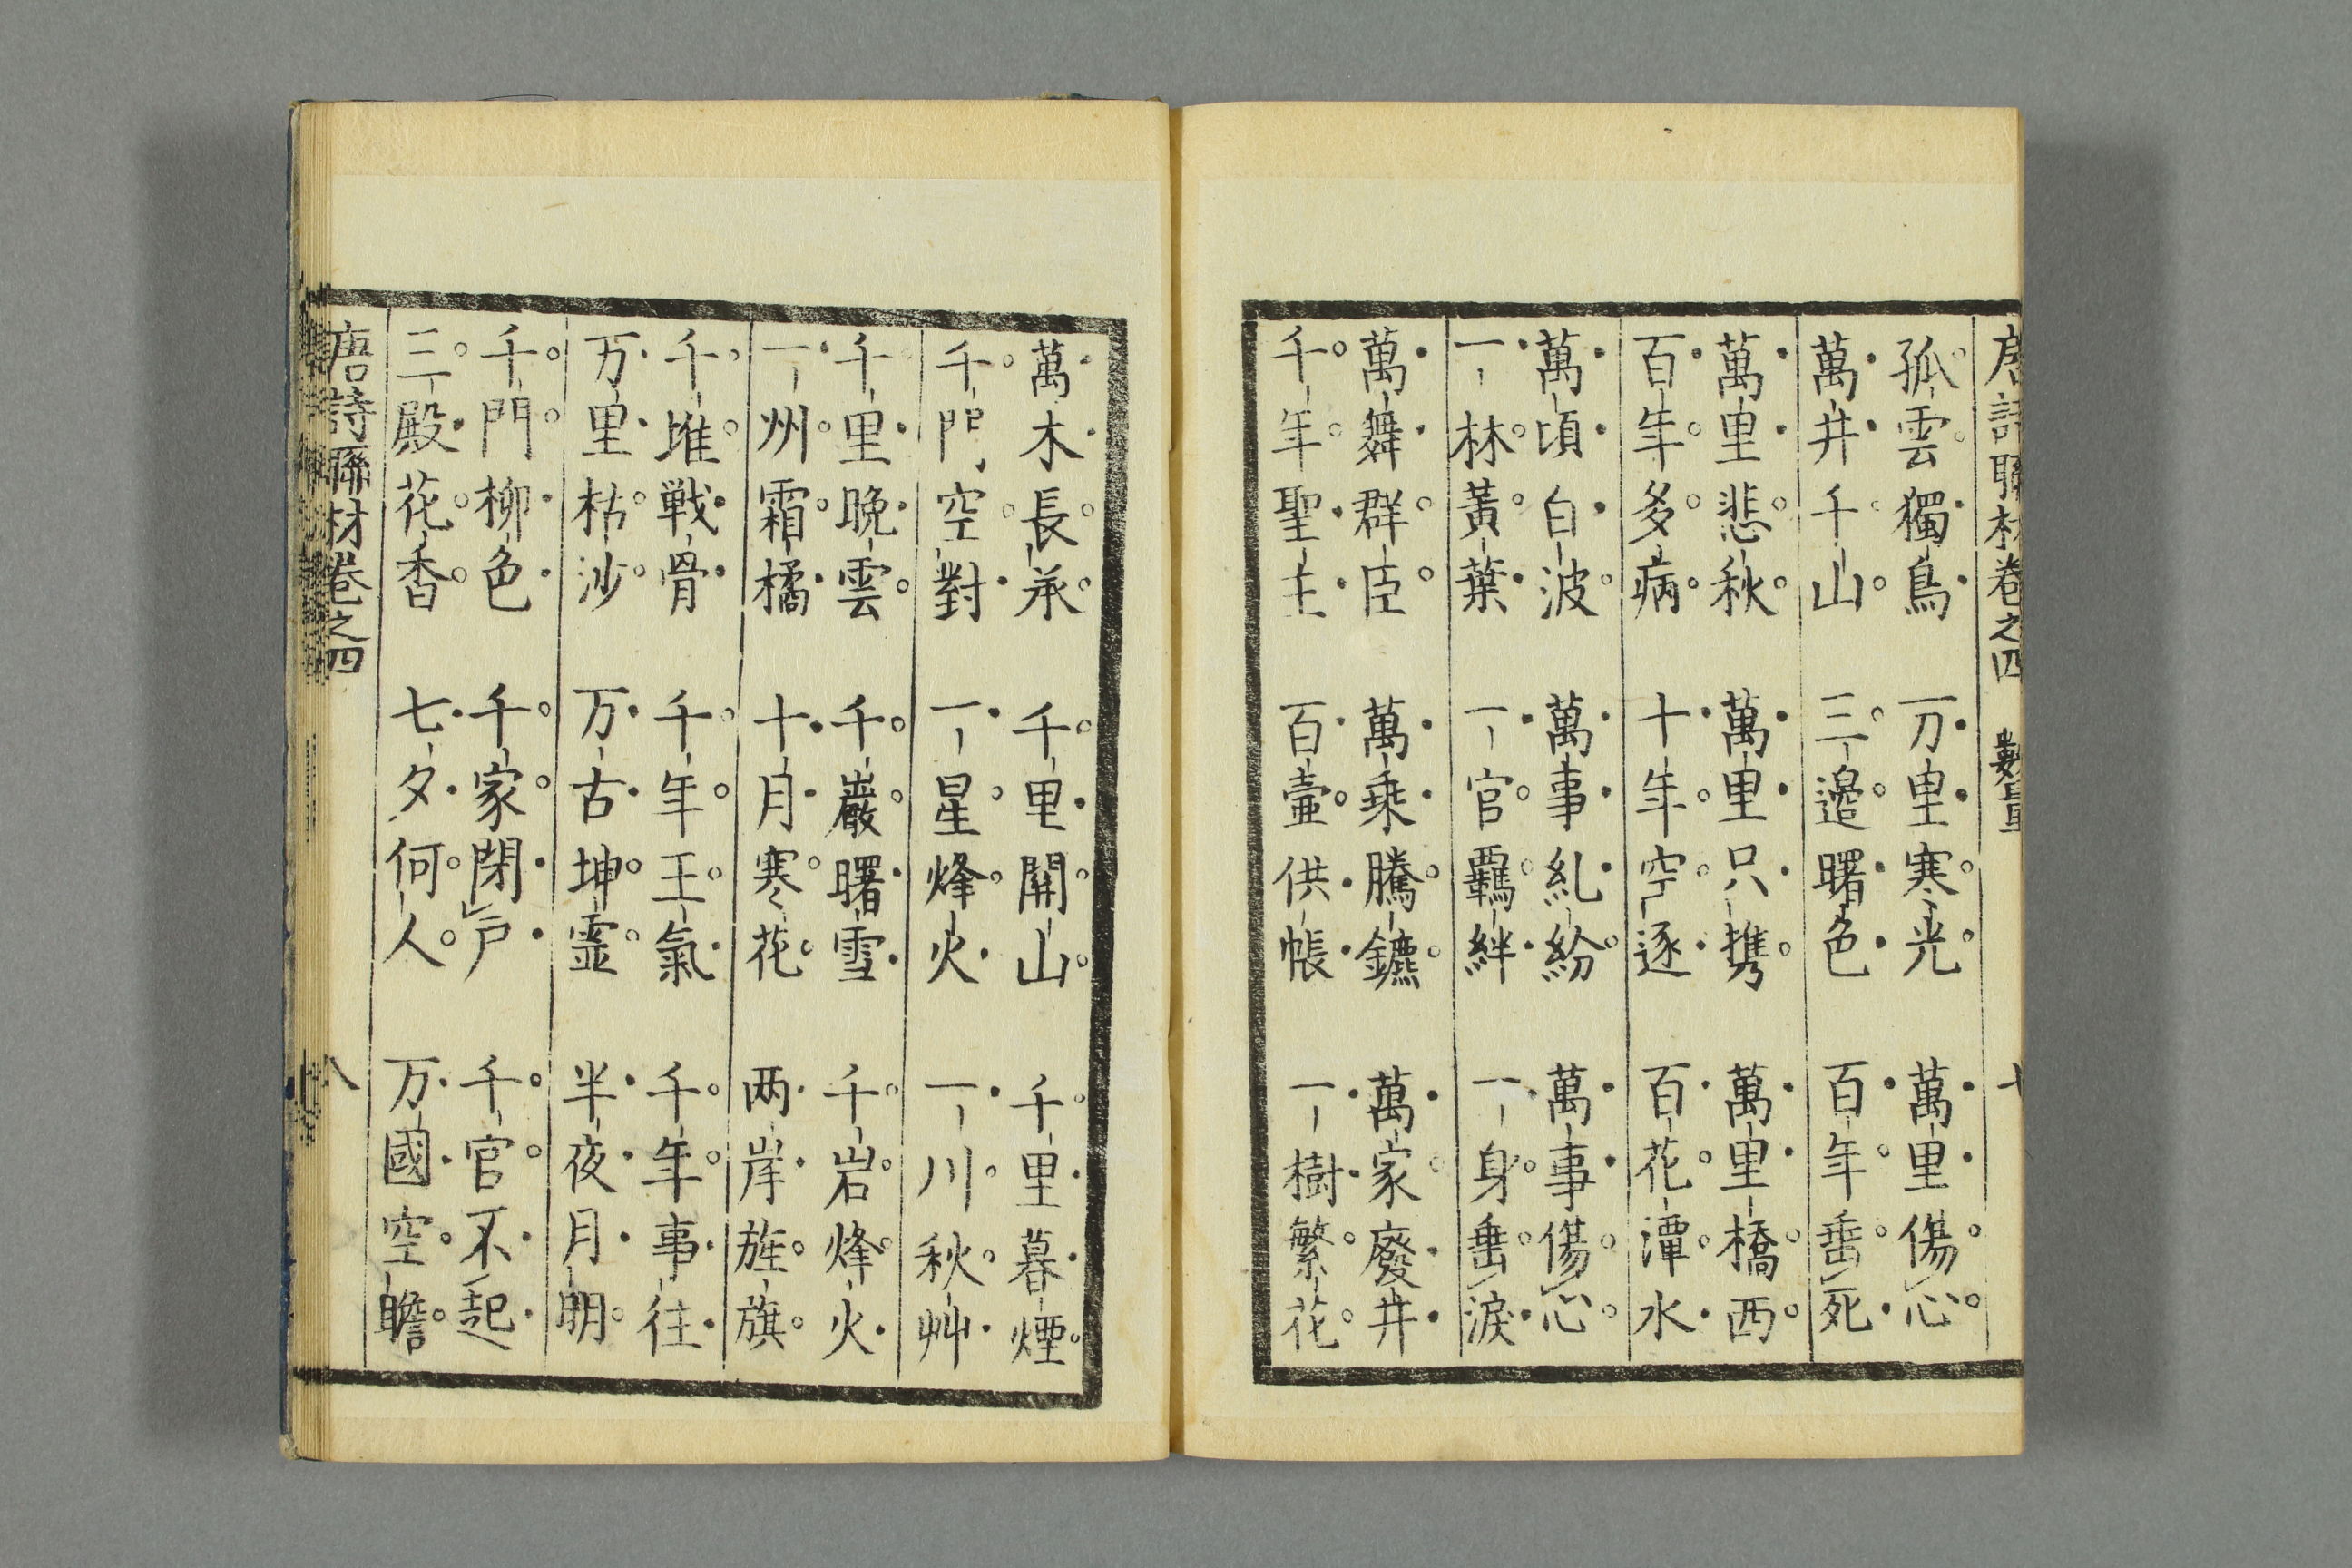 唐詩聯材卷之四 數量 七
孤雲獨鳥 万里寒光 萬里傷心
萬井千山 三邊曙色 百年垂死
萬里悲秋 萬里只携 萬里橋西
百年多病 十年空逐 百花潭水
萬頃白波 萬事糺紛 萬事傷心
一林黃葉 一官羈絆 一身垂淚
萬舞群臣 萬乘騰鑣 萬家廢井
千年聖主 百壷供帳 一樹繁花
萬木長承 千里關山 千里暮煙
千門空對 一星烽火 一川秋艸
千里晩雲 千巖曙雪 千岩烽火
一州霜橘 十月寒花 两岸旌旗
千堆戦骨 千年王氣 千年事往
万里枯沙 万古坤霊 半夜月明
千門柳色 千家閉戸 千官不起
三殿花香 七夕何人 万國空瞻
唐詩聯材卷之四 八